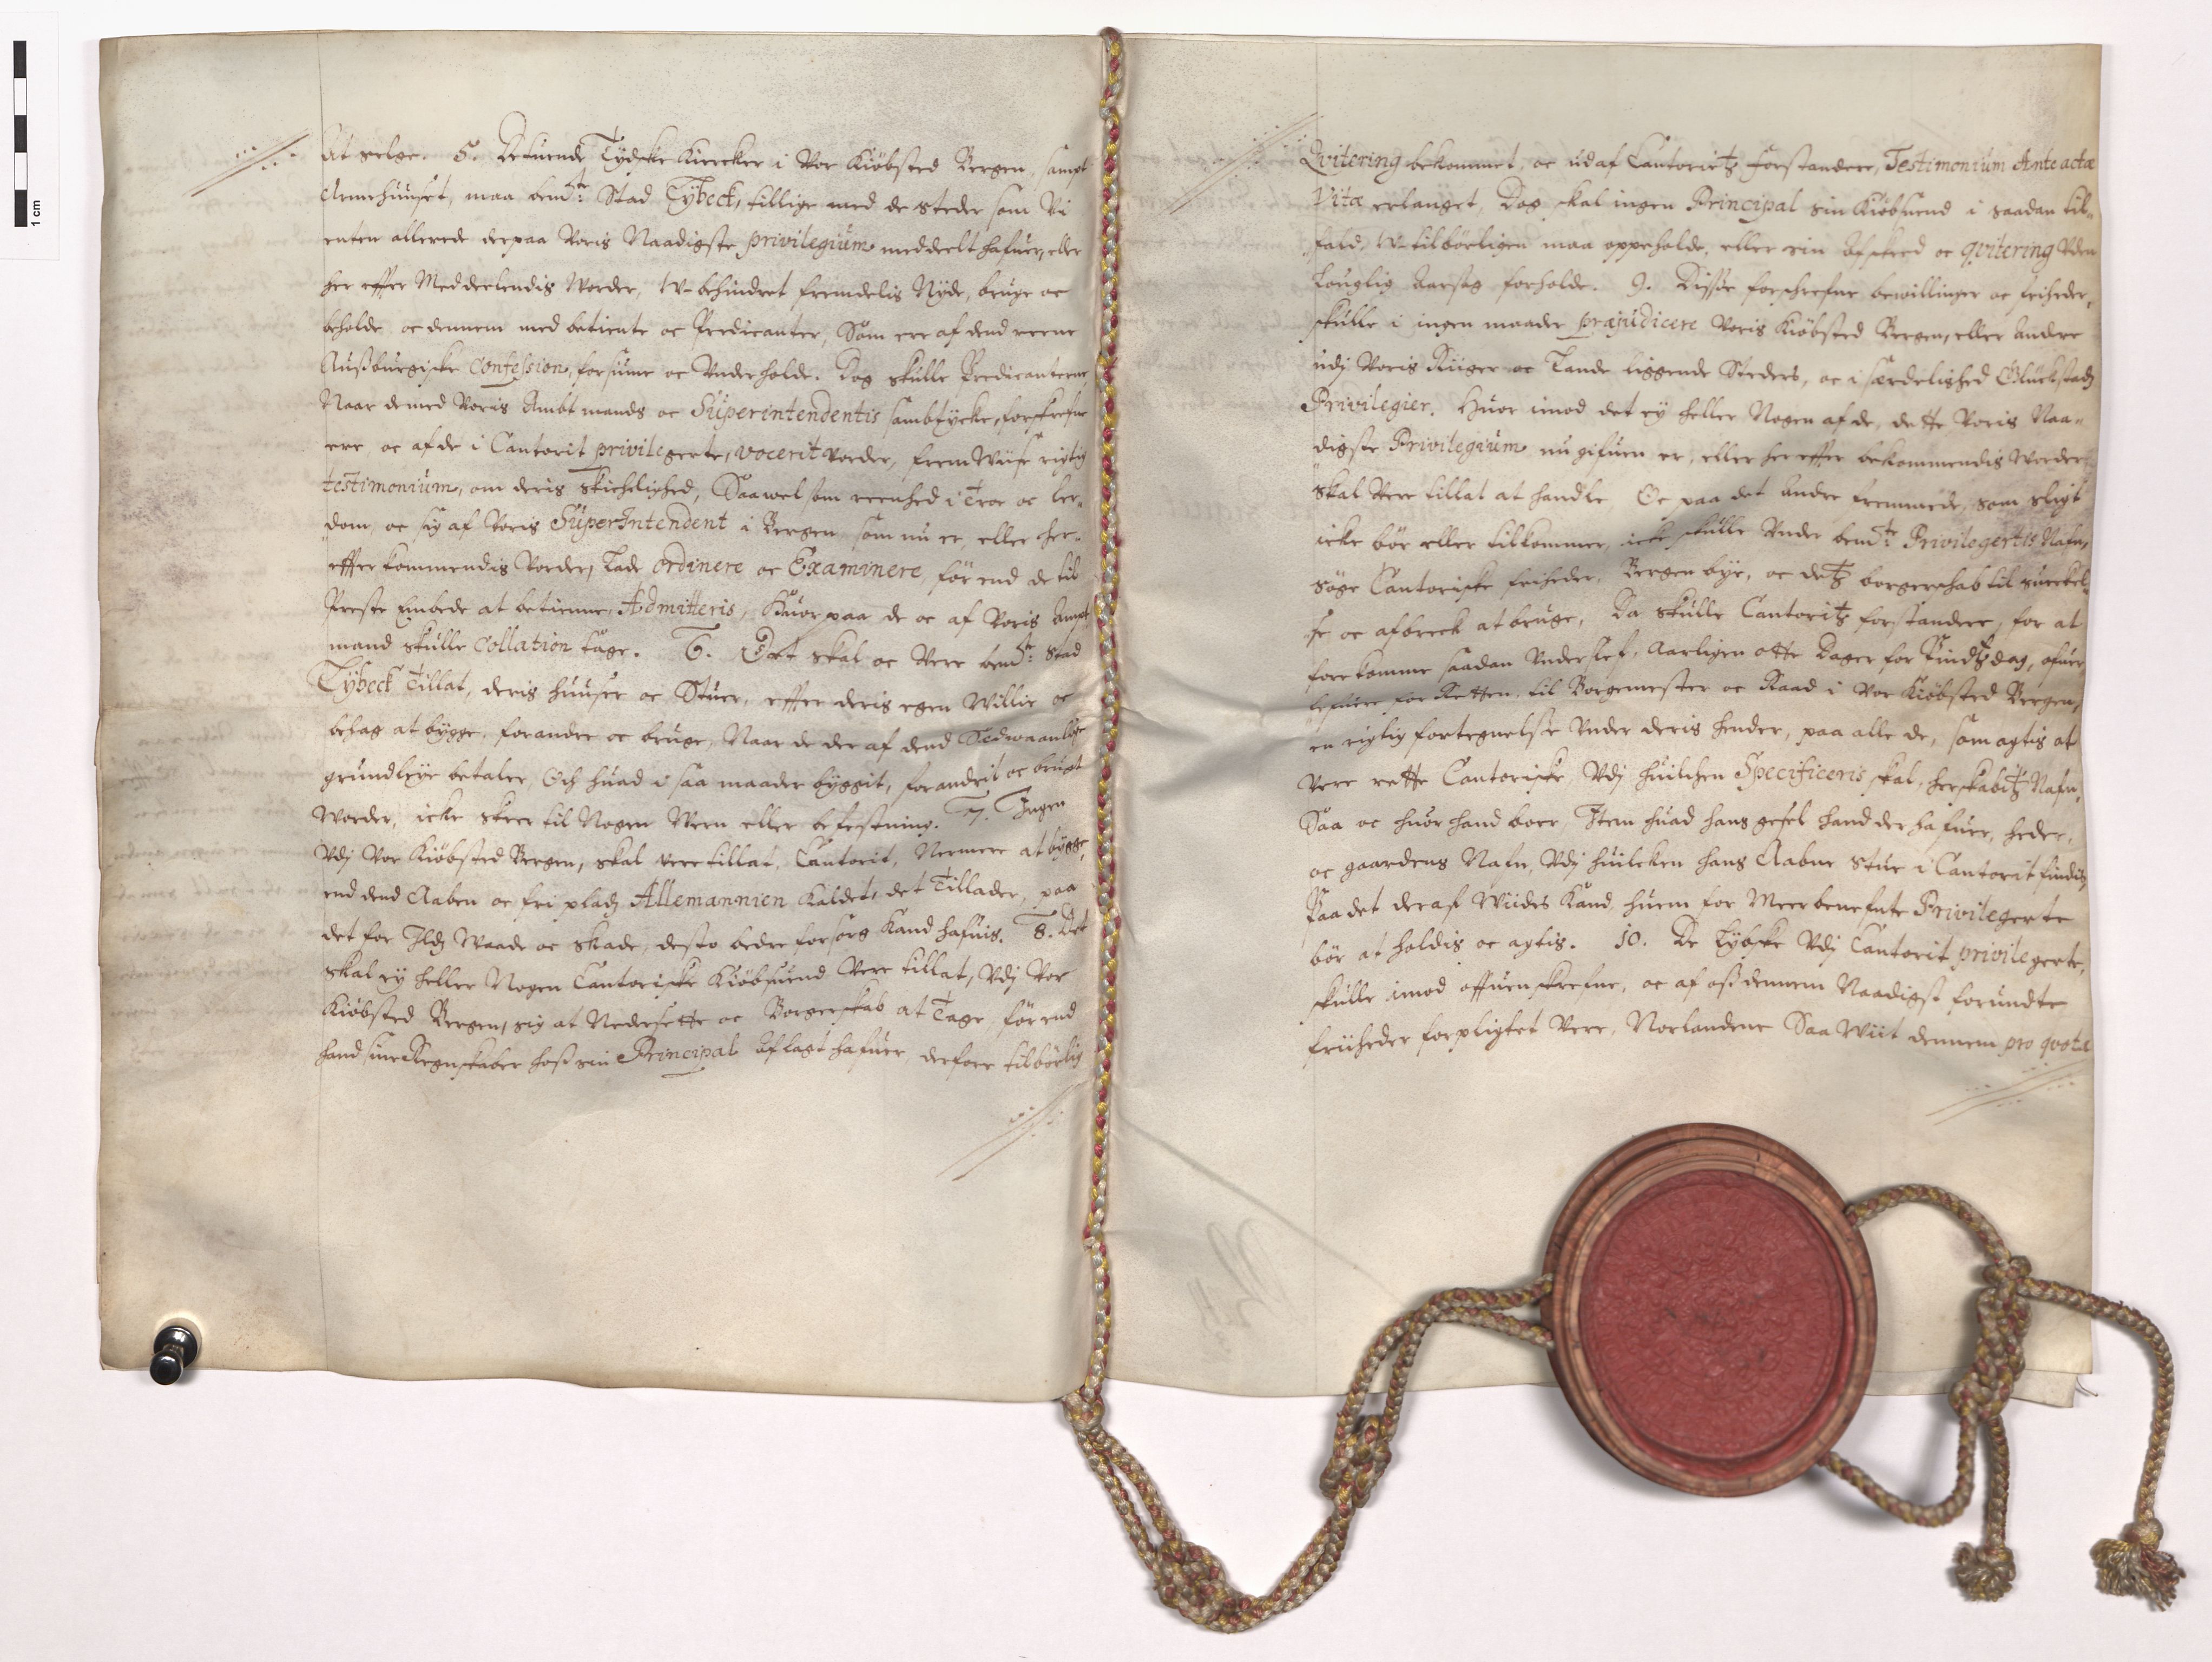 1 cm
At selge. 5. De tuende Tydske Kiercker i Vor Kiöbsted Bergen, sampt
Armehuuset, maa bemte: Stad Lybeck, tillige med de steder som Vi
enten allerede derpaa Voris Naadigste privilegium meddeelt hafuer, eller
her effter Meddeelendis Vorder, W-behindret fremdelis Nyde, bruge oc
beholde, oc dennem med betiente oc Predicanter, Som ere af dend reene
Außburgiske Confession, forsiune oc Underholde. Dog skulle Predicanterne,
Naar de med Voris Ambtmands oc Superintendentis sambtycke, forskrefne
ere, oc af de i Cantorit privilegerte, vocerit vorder, frem Wiise rigtig
testimonium, om deris Skickelighed, Saawel som reenhed i Troe oc ler-
dom, oc sig af Voris SuperIntendent i Bergen, som nu er, eller her-
effter kommendis Vorder, Lade ordinere oc Examinere, för end de til
Preste Embede at betienne, Admitteris, Huor paa de oc af Voris Ampt
mand skulle Collation tage. 6. Det skal oc Vere bemte: Stad
Lybeck Tillat, deris huuser oc Stuer, effter deris egen Willie oc
behag at bygge, forandre oc bruge, Naar de der af dend Sedwaanlige
grundleye betaler, Och huad i saa maader byggit, forandrit oc brugt
Vorder, icke skeer til Nogen Wern eller befestning. 7. Ingen
Udj Vor Kiöbsted Bergen, skal vere tillat, Cantorit, Nermere at bygge,
end dend Aaben oc fri pladz Allemannien Kaldet, det Tillader, paa
det for Ildz Waade oc skade, desto bedre forsorg Kand hafuis. 8. Det
skal ey heller Nogen Cantoriske Kiöbsuend Vere tillat, Udj Vor
Kiöbsted Bergen, sig at Nedersette oc Borgerskab at Tage, för end
hand sine Regnskaber hoß sin Principal aflagt hafuer, derfore tilbörlig
Qvitering bekommet, oc udaf Cantorietz forstandere, Testimonium Ante actæ
Vitæ erlanget, Dog skal ingen Principal sin Kiöbsuend i saadan til-
fald, W-tilbörligen maa oppeholde, eller sin Afskeed oc qvitering Uden
Louglig Aarsag forholde. 9. Diße forschrefne bewillinger oc friheder,
skulle i ingen maader præjudicere Voris Kiöbsted Bergen, eller andre
udj Voris Riiger oc Lande liggende Steders, oc i særdelished Glückstadz
Privilegier. Huor imod det ey heller Nogen af de, dette Voris Naa-
digste Privilegium nu gifuen er, eller her effter bekommendis Vorder
skal Vere tillat at handle. Oc paa det andre fremmede, som sligt
icke bör eller tilkommer, icke skulle Under bemte: Privilegertis Nafn,
söge Cantoriske friheder, Bergen bye, oc detz borgerschab til suechel-
se oc afbreck at bruge, Da skulle Cantoritz forstandere, for at
fore komme saadan Underslef, Aarligen otte Dager for Pindtzdag, ofuer
lefuere for Retten, til Borgemester oc Raad i Vor Kiöbsted Bergen,
en rigtig fortegnelse Under deris hender, paa alle de, som agtis at
vere rette Cantoriske, Udj huilchen Specificeris skal, herskabitz Nafn,
Saa oc huor hand boer, Item huad hans gesel hand der hafuer, heder,
oc gaardens Nafn, Udj huilcken hans Aabne Stue i Cantorit findis,
Paa det deraf Wiides Kand, huem for Meerbenefnte Privilegerte
bör at holdis oc agtis. 10. De Lybske Udj Cantorit privilegerte,
skulle imod offuenskrefne, oc af oß dennem Naadigst forundte
friiheder forpligtet Vere, Norlandene Saa Wiit dennem pro qvota